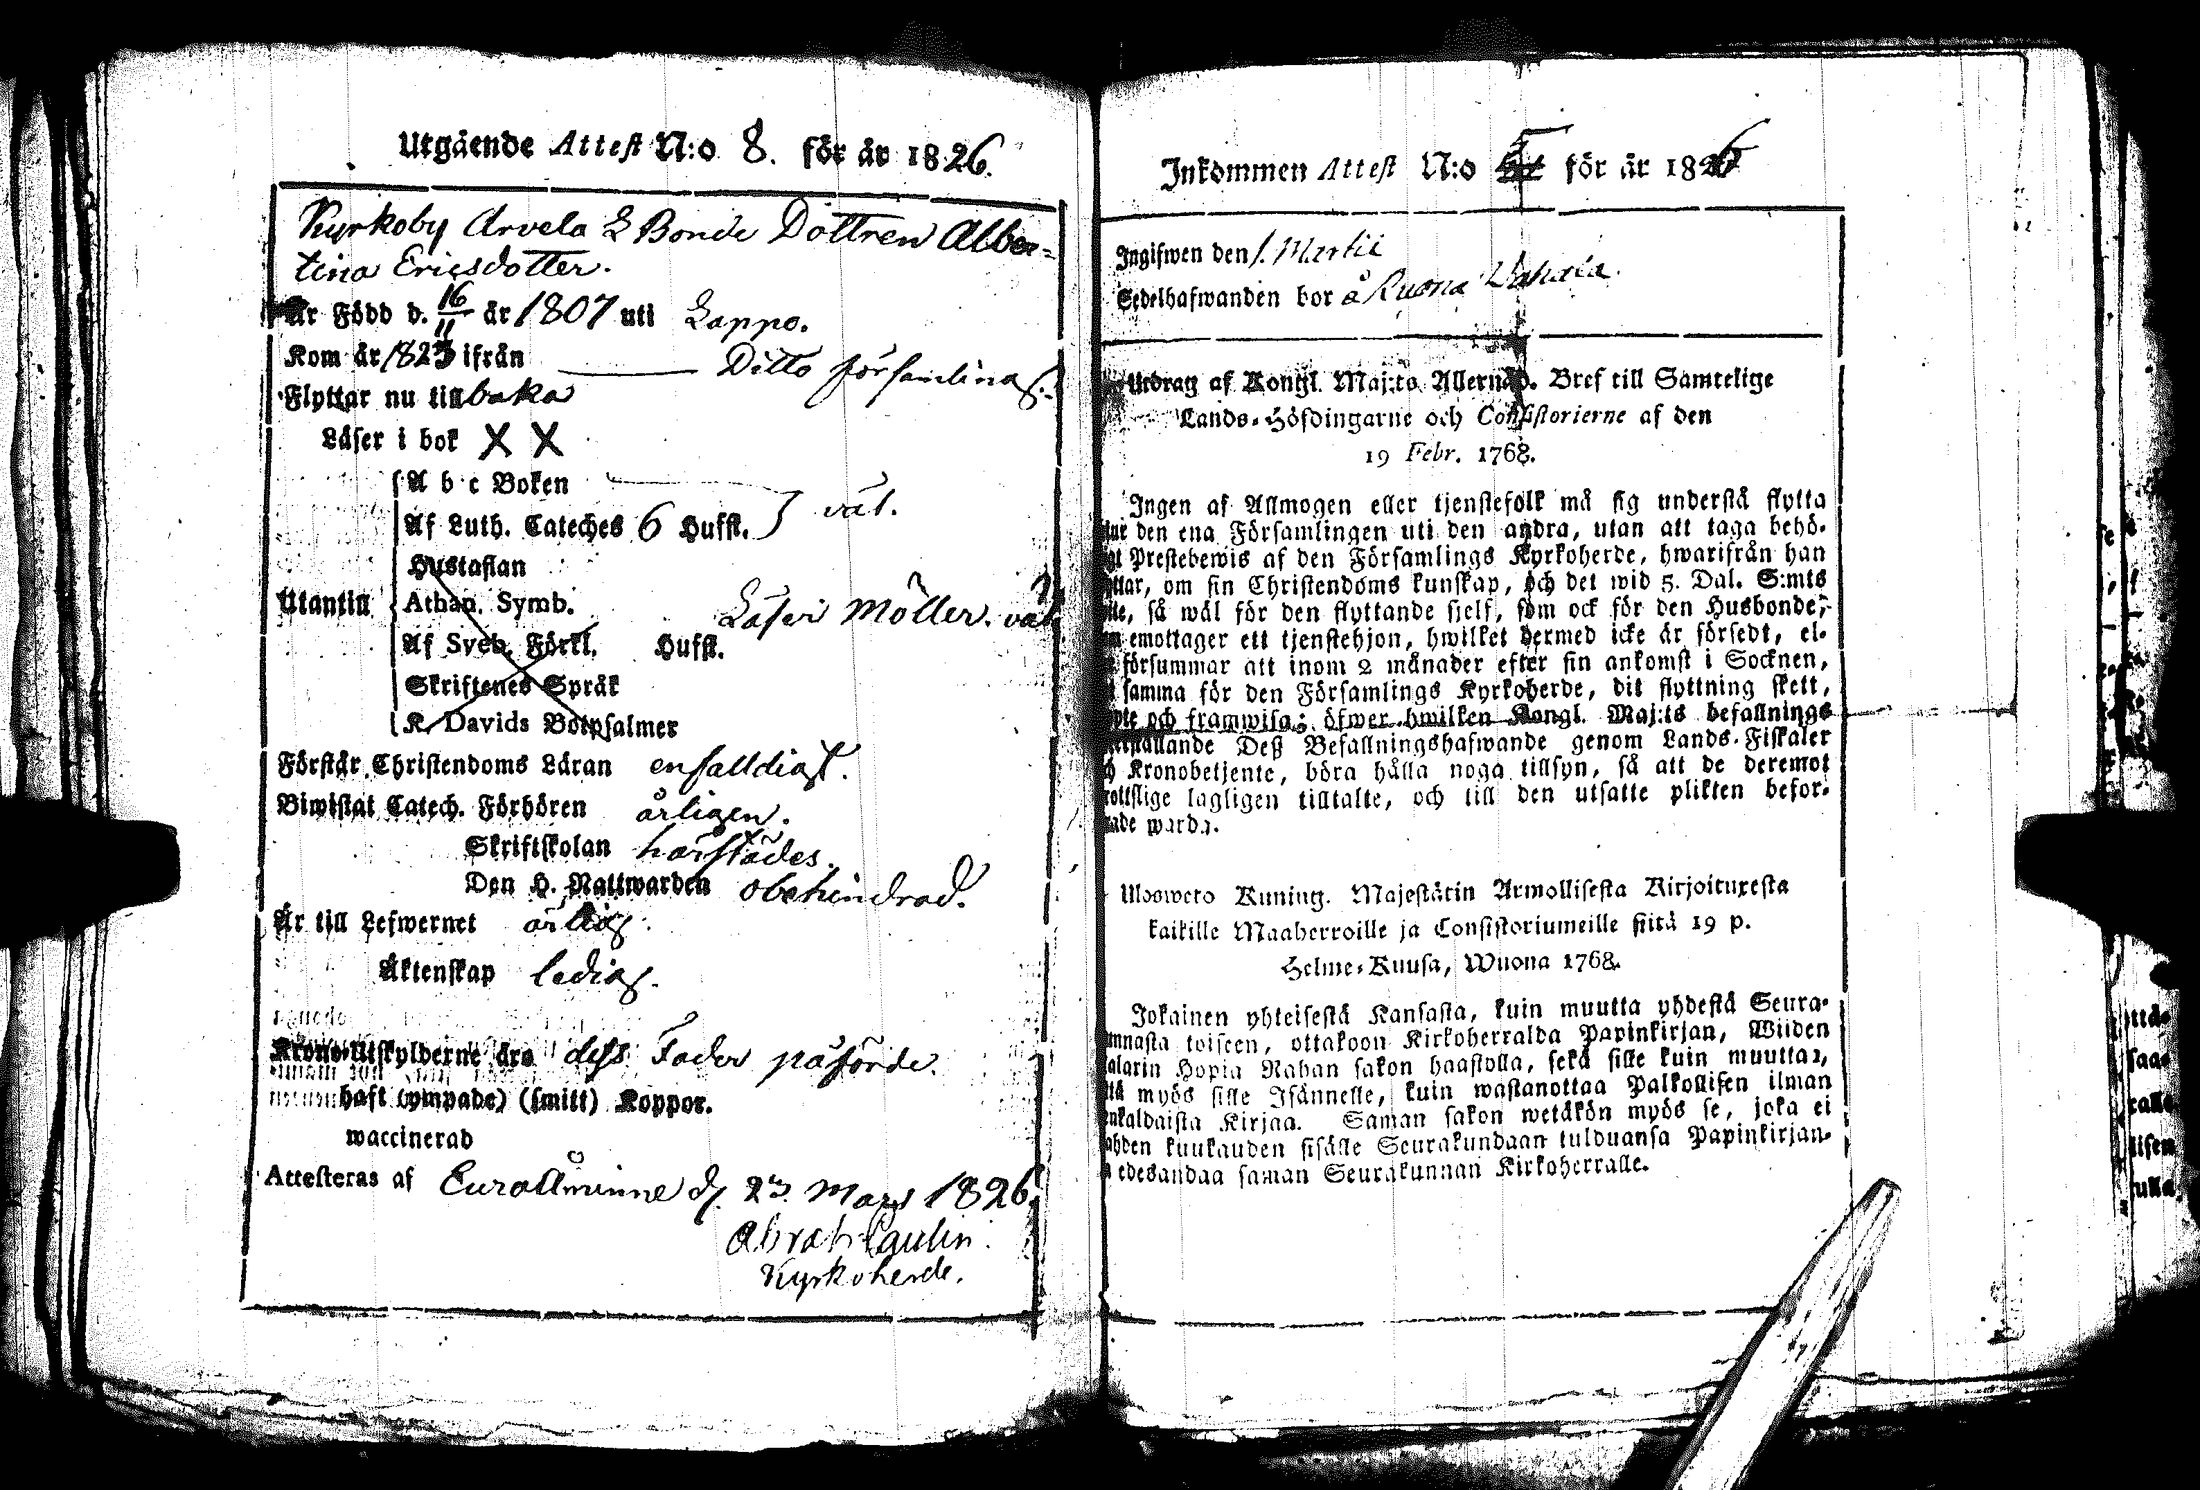 Utgående Attest N:o 8. för år 1826.
Kyrkoby Arvela Bonde Dottren Alber-
tina Ericsdotter.
Är Född d. 16/11 år 1807 uti Lappo.
Kom år 1823 ifrån — Ditto församling.
Flyttar nu tillbaka
Läser i bok X X
A b c Boken
Af Luth. Cateches 6 Hufst. } väl.
Hustaflan
Utantill Athan. Symb. Läser Möller. väl
Af Sveb. Förkl. Hufst.
Skriftenes Språk
K. Davids Botpsalmer
Förstår Christendoms Läran enfalldigt.
Biwistat Catech. Förhören årligen.
Skriftskolan härstädes.
Den H. Nattwarden obehindrad.
Är till Lefwernet ärlig.
Äktenskap ledig.
Krono-Utskylderne äro dess Fader påförde.
haft (ympade) (smitt) Koppor.
waccinerad
Attesteras af Euraåminne d. 23 Mars 1826.
Abrah Paulin.
Kyrkoherde.
Inkommen Attest N:o 5 för år 1826
Ingifwen den 1. Martii
Sedelhafwanden bor å Ruona
Utdrag af Kongl. Maj:ts Allernåd. Bref till Samtelige
Lands-Höfdingarne och Consistorierne af den
19 Febr. 1768.
Ingen af Allmogen eller tjenstefolk må sig understå flytta
den ena Församlingen uti den andra, utan att taga behö-
Prestebewis af den Församlings Kyrkoherde, hwarifrån han
om sin Christendoms kunskap, och det wid 5. Dal. S:mts
så wäl för den flyttande sjelf, som ock för den Husbonde,
emottager ett tjenstehjon, hwilket dermed icke är försedt, el-
försummar att inom 2 månader efter sin ankomst i Socknen,
samma för den Församlings Kyrkoherde, dit flyttning skett,
och framwisa; öfwer hwilken Kongl. Maj:ts befallnings
Deß Befallningshafwande genom Lands-Fiskaler
Kronobetjente, böra hålla noga tillsyn, så att de deremot
lagligen tilltalte, och till den utsatte plikten befor-
warda.
Ulosweto Kuning. Majestätin Armollisesta Kirjoituxesta
kaikille Maaherroille ja Consistoriumeille siitä 19 p.
Helme-Kuusa, Wuona 1768.
Jokainen yhteisestä Kansasta, kuin muutta yhdestä Seura-
toiseen, ottakoon Kirkoherralda Papinkirjan, Wiiden
Hopia Rahan sakon haastolla, sekä sille kuin muuttaa,
myös sille Isännelle, kuin wastanottaa Palkollisen ilman
Kirjaa. Saman sakon wetäkön myös se, joka ei
kuukauden sisälle Seurakundaan tulduansa Papinkirjan-
edesandaa saman Seurakunnan Kirkoherralle.